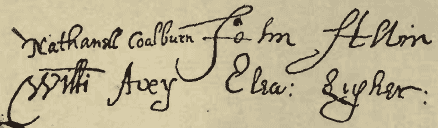 Nathanell Coalburn John Allin
Willi Avey Elea: Lusher: